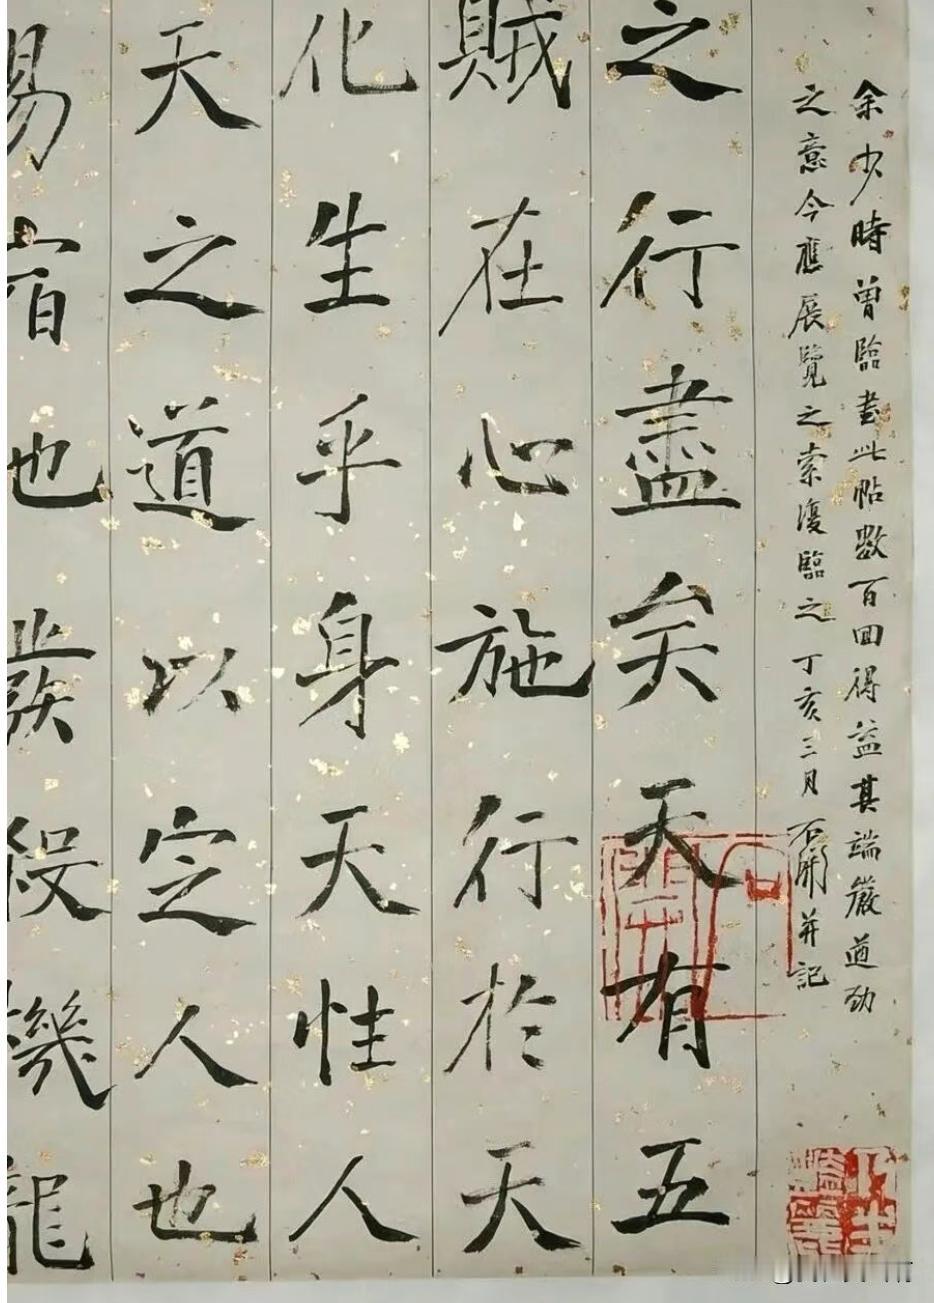 余少時曾臨書此帖數百回得益其端嚴遒勁
之意今應展覽之索復臨之丁亥三月石開并記
之行盡矣天有五
賊在心施行於天
化生乎身天性人
天之道以定人也
易宿地發殺機龍
石開